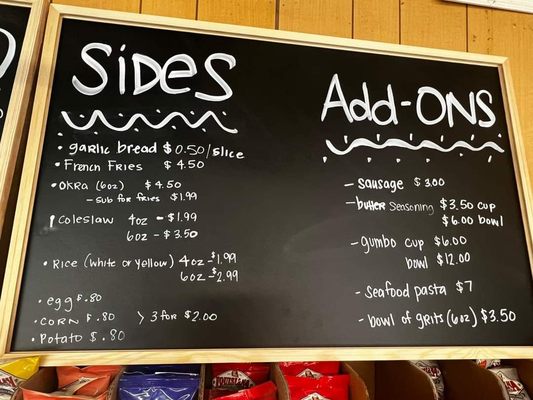 Sides
• garlic bread $0.50/slice
• French Fries $4.50
• Okra (6oz) $4.50
- sub for fries $1.99
Coleslaw 4oz - $1.99
6oz - $3.50
• Rice (white or yellow) 4oz - $1.99
6oz - $2.99
• egg $.80
• corn $.80 > 3 for $2.00
• Potato $.80
Add-Ons
- sausage $3.00
- butter seasoning $3.50 cup
$6.00 bowl
- gumbo cup $6.00
bowl $12.00
- seafood pasta $7
- bowl of grits (6oz) $3.50
LOUISIANA